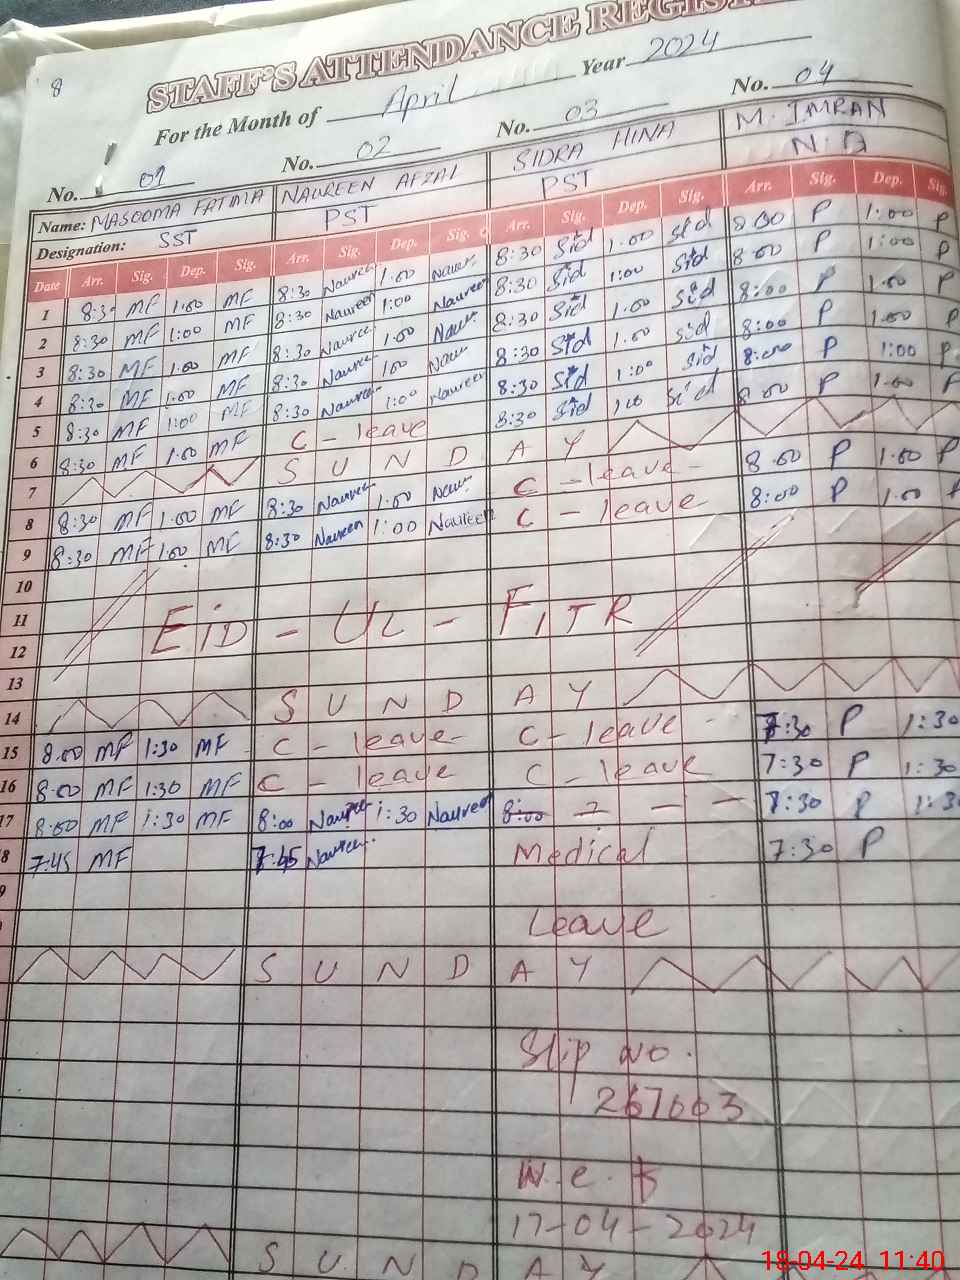 8
STAFF'S ATTENDANCE REGIS
For the Month of April Year 2024
No. 01 No. 02 No. 03 No. 04
Name: MASOOMA FATIMA NAUREEN AFZAL SIDRA HINA M. IMRAN
Designation: SST PST PST N.Q
Date Arr. Sig. Dep. Sig. Arr. Sig. Dep. Sig. Arr. Sig. Dep. Sig. Arr. Sig. Dep. Sig.
1 8:3 MF 1.00 MF 8:30 Naureen 1.00 Naur 8:30 Sid 1.00 Sid 8:00 P 1:00 P
2 8:30 MF 1:00 MF 8:30 Naureen 1:00 Naureen 8:30 Sid 1:00 Sid 8:00 P 1:00 P
3 8:30 MF 1.00 MF 8:30 Naureen 1.00 Naur 8:30 Sid 1.00 Sid 8:00 P 1.00 P
4 8:30 MF 1:00 MF 8:30 Naureen 1:00 Naur 8:30 Sid 1.00 Sid 8:00 P 1.00 P
5 8:30 MF 1:00 MF 8:30 Naureen 1:00 Naureen 8:30 Sid 1:00 Sid 8:00 P 1:00 P
6 8:30 MF 1.00 MF C - leave 8:30 Sid 1:00 Sid 8:00 P 1.00 P
7 S U N D A Y
8 8:30 MF 1.00 MF 8:30 Naureen 1.00 Naur C - leave 8.00 P 1.00 P
9 8:30 MF 1.00 MF 8:30 Naureen 1:00 Naureen C - leave 8:00 P 1.00 P
10
11 EID - UL - FITR
12
13
14 S U N D A Y
15 8.00 MF 1:30 MF C - leave C - leave 7:30 P 1:30
16 8:00 MF 1:30 MF C - leave C - leave 7:30 P 1:30
17 8:00 MF 1:30 MF 8:00 Naureen 1:30 Naureen 8:00 7:30 P 1:3
8 7:45 MF 7:45 Naureen Medical 7:30 P
9
Leave
S U N D A Y
Slip no.
267003
W.e.f
17-04-2024
S U N D A Y
18-04-24 11:40